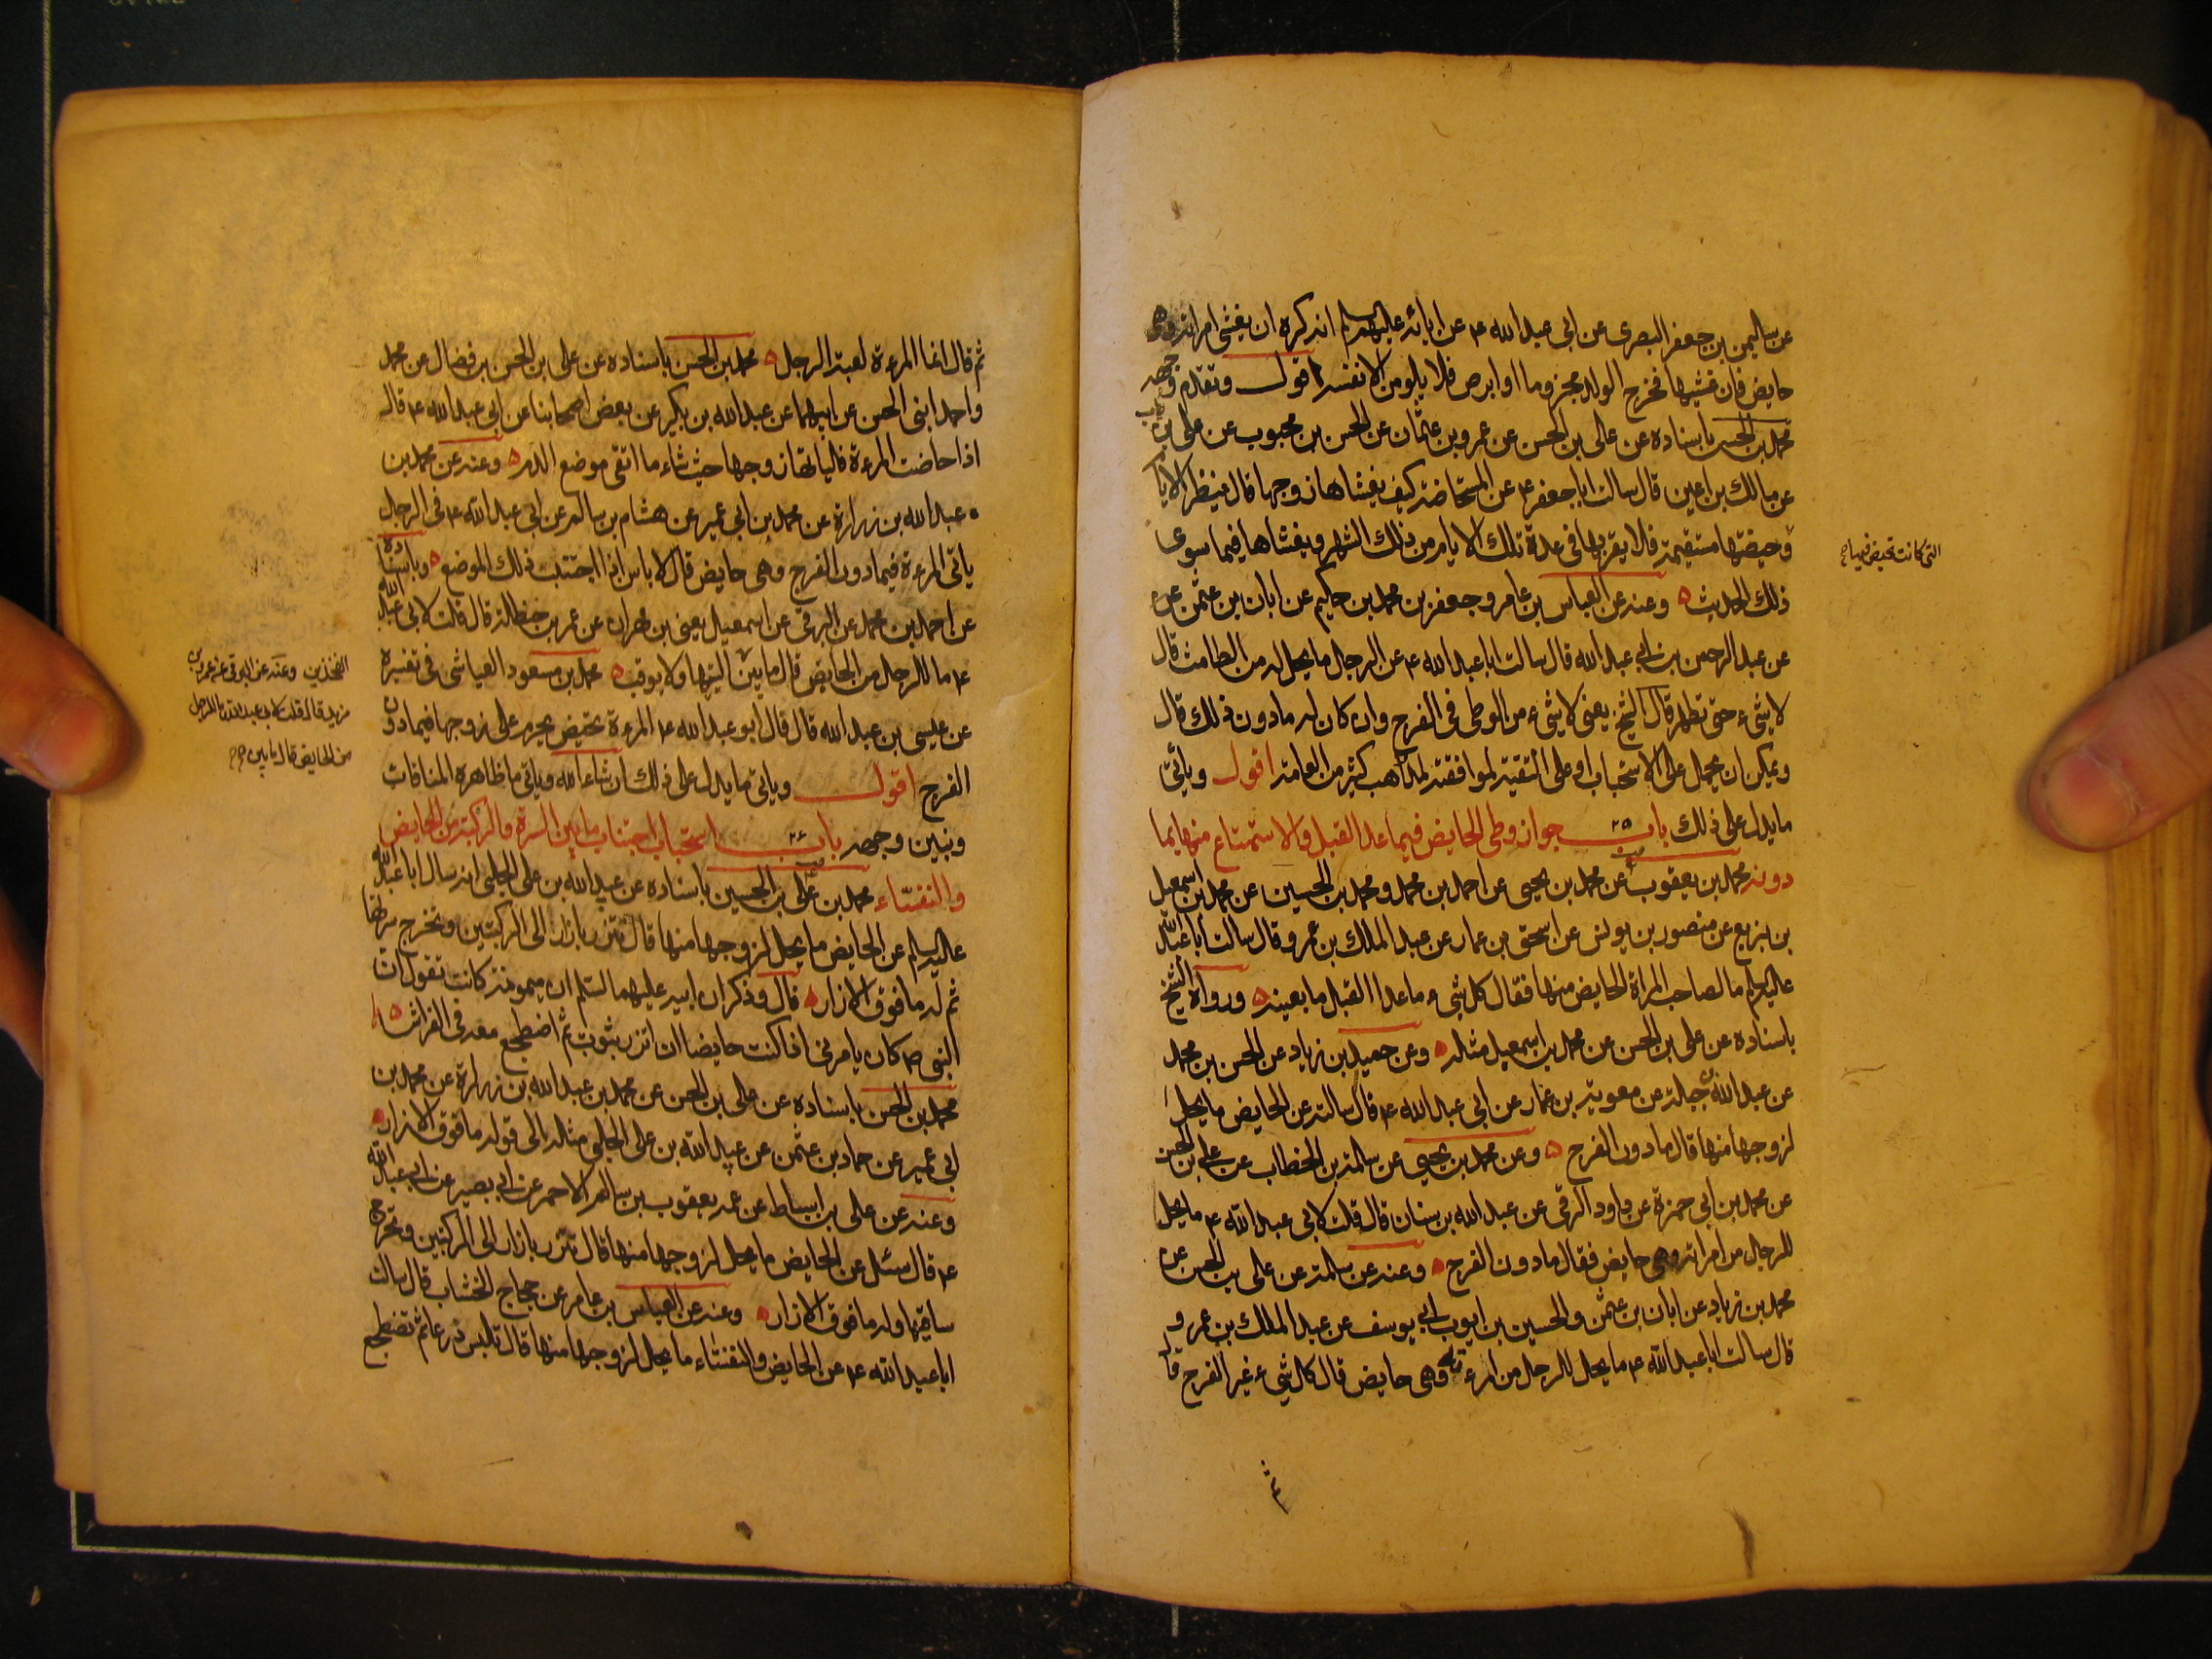 عن سليمن بن جعفر البصرى عن ابى عبد الله ع عن ابائه عليهم السلام انه كره ان يغشى امراته وهى
حايض فان غشيها فخرج الولد مجزوما او ابرص فلا يلومن الا نفسه اقول وتقدم وجهه
محمد بن الحسن باسناده عن على بن الحسن عن عمرو بن عثمان عن الحسن بن محبوب عن على بن
عن مالك بن اعين قال سالت ابا جعفر ع عن المستحاضة كيف يغشاها زوجها قال ينظر الايام
التى كانت تحيض فيها
وحيضتها مستقيمة فلا يقربها فى عدة تلك الايام من ذلك الشهر ويغشاها فيما سوى
ذلك الحديث وعنه عن العباس بن عامر وجعفر بن محمد بن حكيم عن ابان بن عثمن عن
عن عبد الرحمن بن ابى عبد الله قال سالت ابا عبد الله ع عن الرجل ما يحل له من الطامث قال
لا شىء حتى تطهر قال الشيخ يعنى لا شىء من الوطى فى الفرج وان كان له ما دون ذلك قال
ويمكن ان يحمل على الاستحباب او على التقية لموافقته لمذاهب كثير من العامة اقول وياتى
ما يدل على ذلك باب ٢٥ جواز وطى الحايض فيما عدا القبل والاستمتاع منها بما
دونه محمد بن يعقوب عن محمد بن يحيى عن احمد بن محمد ومحمد بن الحسين عن محمد بن اسمعيل
بن بزيع عن منصور بن يونس عن اسحق بن عمار عن عبد الملك بن عمرو قال سالت ابا عبد الله
عليه السلام ما لصاحب المراة الحايض منها فقال كل شىء ما عدا القبل ما بعينه ورواه الشيخ
باسناده عن على بن الحسن عن محمد بن اسمعيل مثله وعن حميد بن زياد عن الحسن بن محمد
عن عبد الله بن جبلة عن معوية بن عمار عن ابى عبد الله ع قال سالته عن الحايض ما يحل
لزوجها منها قال ما دون الفرج وعن محمد بن يحيى عن سلمة بن الخطاب عن على بن الحسن
عن محمد بن ابى حمزة عن داود الرقى عن عبد الله بن سنان قال قلت لابى عبد الله ع ما يحل
للرجل من امراته وهى حايض فقال ما دون الفرج وعنه عن سلمة عن على بن الحسن عن
محمد بن زياد عن ابان بن عثمن والحسين بن ابى يوسف عن عبد الملك بن عمرو
قال سالت ابا عبد الله ع ما يحل للرجل من امرءته وهى حايض قال كل شىء غير الفرج قال
ثم قال انما المرءة لعبة الرجل محمد بن الحسن باسناده عن على بن الحسن بن فضال عن محمد
واحمد ابنى الحسن عن ابيهما عن عبد الله بن بكير عن بعض اصحابنا عن ابى عبد الله ع قال
اذا حاضت المرءة فلياتها زوجها حيث شاء ما اتقى موضع الدم وعنه عن محمد بن
عبد الله بن زرارة عن محمد بن ابى عمير عن هشام بن سالم عن ابى عبد الله ع فى الرجل
ياتى المرءة فيما دون الفرج وهى حايض قال لا باس اذا اجتنب ذلك الموضع وباسناده
عن احمد بن محمد عن البرقى عن اسمعيل يعنى بن مهران عن عمر بن حنظلة قال قلت لابى عبد الله
ع ما للرجل من الحايض قال ما بين اليتيها ولا يوقب محمد بن مسعود العياشى فى تفسيره
الفخذين وعنه عن البرقى عن عمر بن
يزيد قال قلت لابى عبد الله ع ما للرجل
من الحايض قال ما بين
عن عليسى بن عبد الله قال قال ابو عبد الله ع المرءة تحيض يحرم على زوجها فيما دون
الفرج اقول وياتى ما يدل على ذلك ان شاء الله وياتى ما ظاهره المنافات
ونبين وجهه باب ٢٦ استحباب اجتناب ما بين السرة والركبة من الحايض
والنفساء محمد بن على بن الحسين باسناده عن عبيد الله بن على الحلبى انه سال ابا عبد الله
عليه السلام عن الحايض ما يحل لزوجها منها قال تتزر بازار الى الركبتين وتخرج سرتها
ثم له ما فوق الازار قال وذكر ان ابيه عليهما السلم ان ميمونة كانت تقول ان
النبى ص كان يامرنى اذا كنت حايضا ان اتزر بثوب ثم اضطجع معه فى الفراش
محمد بن الحسن باسناده عن على بن الحسن عن محمد بن عبد الله بن زرارة عن محمد بن
ابى عمير عن حماد بن عثمن عن عبيد الله بن على الحلبى مثله الى قوله ما فوق الازار
وعنه عن على بن اسباط عن عمه يعقوب بن سالم الاحمر عن ابى بصير عن ابى عبد الله
ع قال سئل عن الحايض ما يحل لزوجها منها قال تتزر بازار الى الركبتين وتخرج
ساقيها وله ما فوق الازار وعنه عن العباس بن عامر عن حجاج الخشاب قال سالت
ابا عبد الله ع عن الحايض والنفساء ما يحل لزوجها منها قال تلبس درعا ثم تضطجع